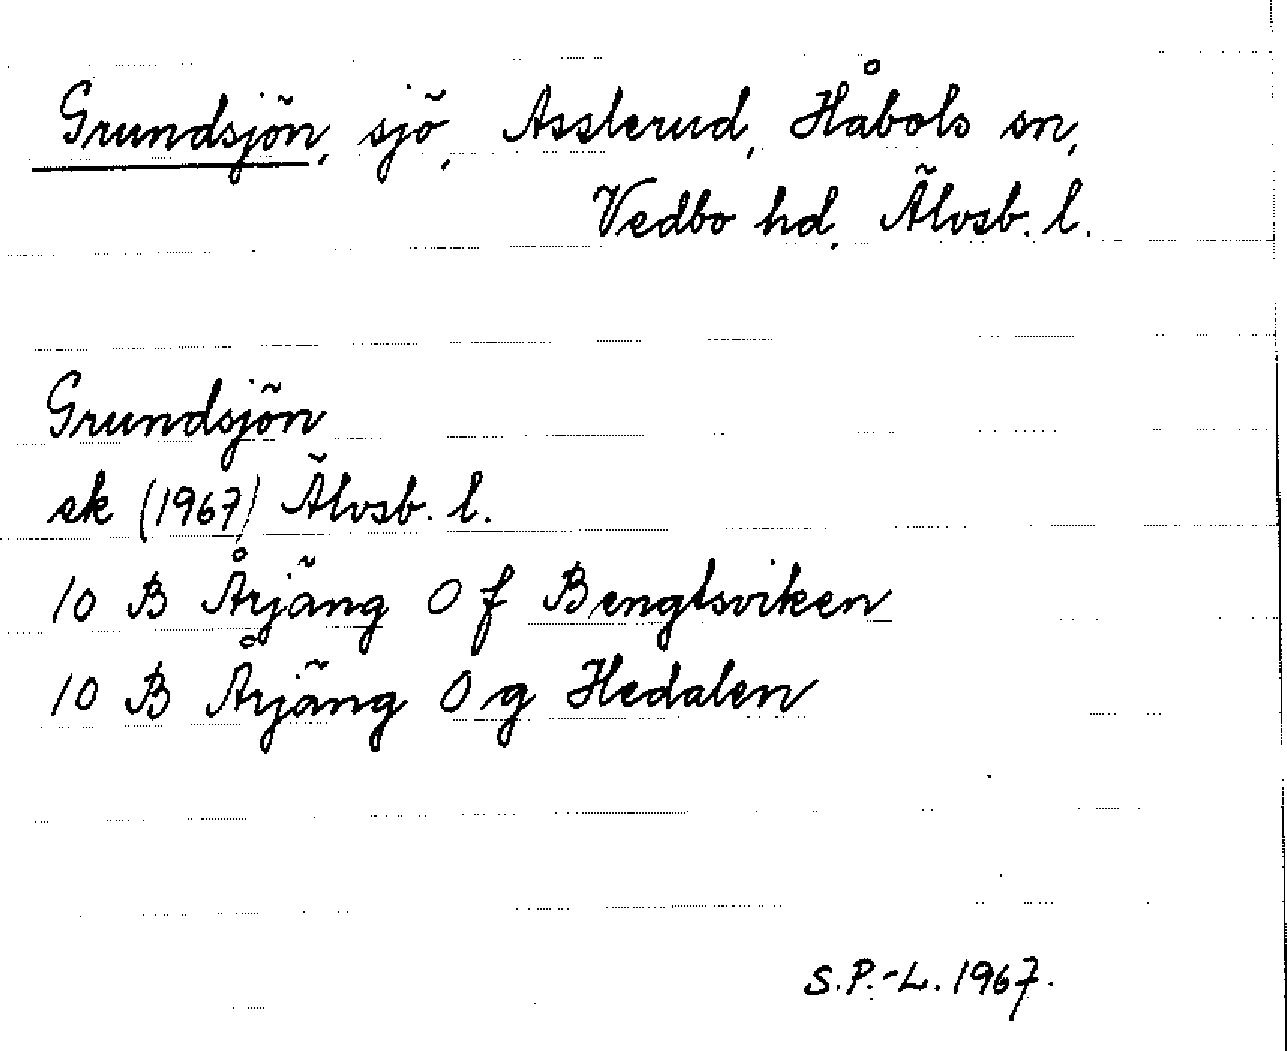 Grundsjön, sjö, Asslerud, Håbols sn,
Vedbo hd, Älvsb. l.
Grundsjön
ek (1967) Älvsb. l.
10 B Årjäng 0 f Bengtsviken
10 B Årjäng 0 g Hedalen
S.P.-L. 1967.